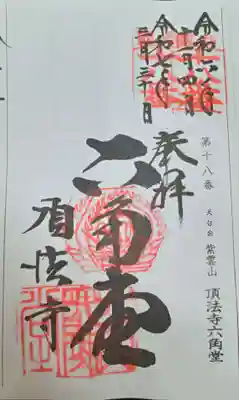 令和六年
十一月四日
令和七年
三月三十日
第十八番 紫雲山 頂法寺六角堂
奉拝
六角堂
頂法寺